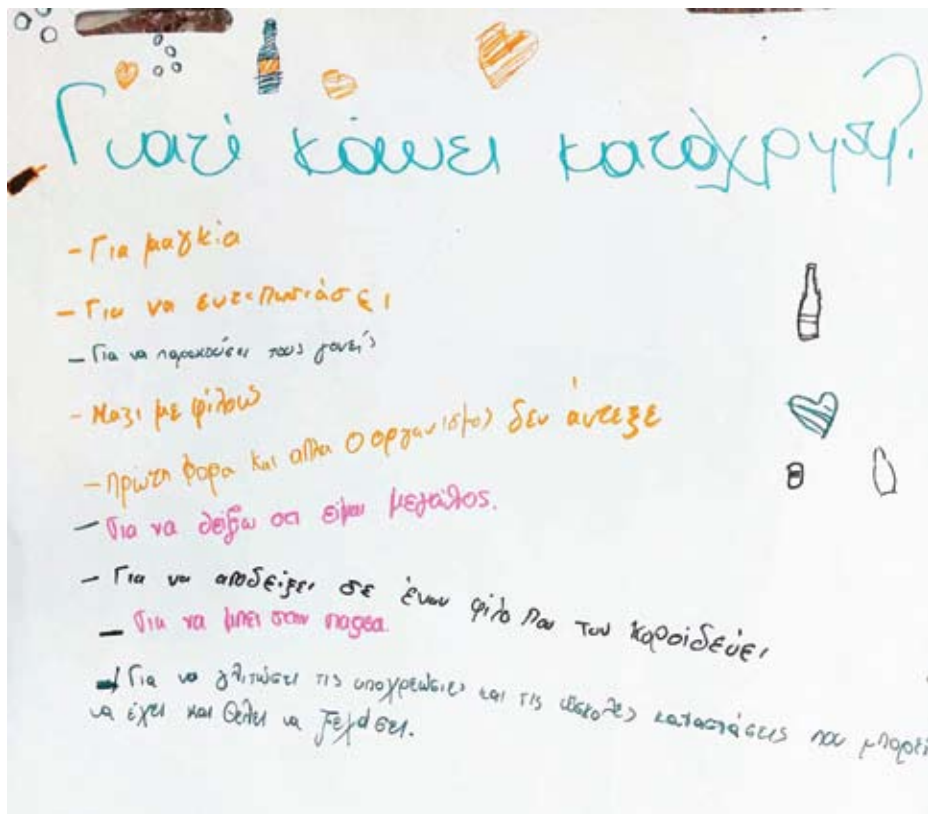 Γιατί κάνει κατάχρηση?
- Για μαγκιά
- Για να εντυπωσιάσει
- Για να παρακούσει τους γονείς
- Μαζι με φίλους
- πρώτη φορα και απλα ο οργανισμος δεν άντεξε
- Για να δείξω οτι είμαι μεγάλος.
- Για να αποδείξει σε έναν φίλο που τον κοροιδεύει
- Για να μπει στην παρέα.
- Για να γλιτώσει τις υποχρεώσεις και τις δύσκολες καταστάσεις που μπορεί
να έχει και θέλει να ξεχάσει.